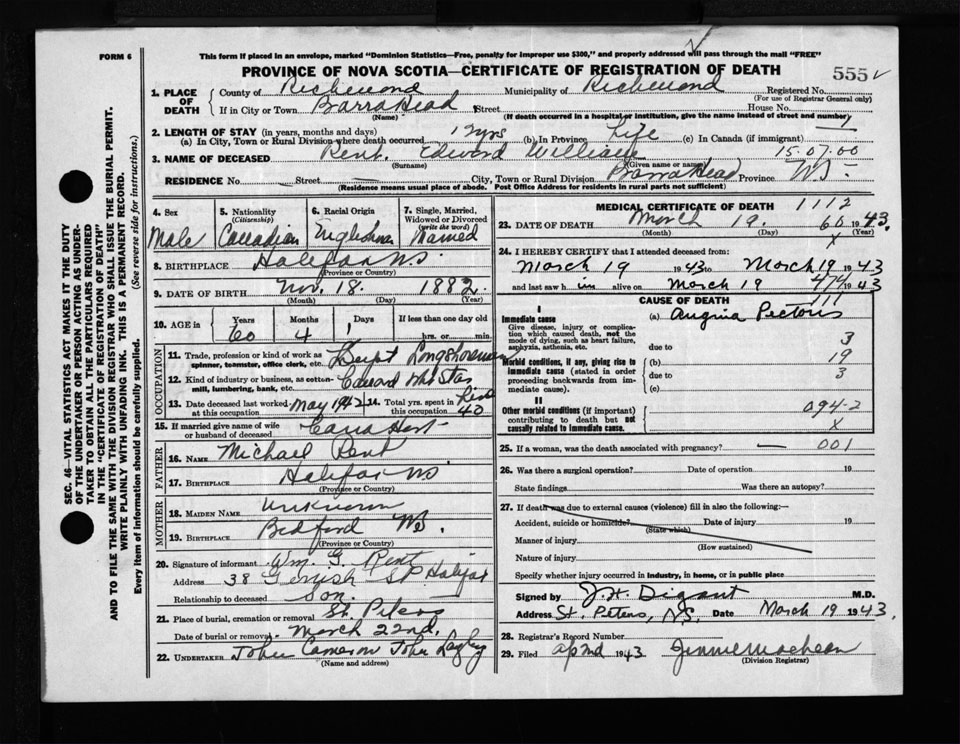 FORM 6
This form if placed in an envelope, marked "Dominion Statistics—Free, penalty for improper use $300," and properly addressed will pass through the mail "FREE"
PROVINCE OF NOVA SCOTIA—CERTIFICATE OF REGISTRATION OF DEATH
555
1. PLACE OF DEATH
County of Richmond Municipality of Richmond Registered No.
(For use of Registrar General only)
If in City or Town Barra Head Street House No.
(Name) (If death occurred in a hospital or institution, give the name instead of street and number)
2. LENGTH OF STAY (in years, months and days)
(a) In City, Town or Rural Division where death occurred 12 yrs (b) In Province Life (c) In Canada (if immigrant)
15.07.00
3. NAME OF DECEASED Rent. Edward William
(Surname) (Given name or names)
RESIDENCE No. Street City, Town or Rural Division Barra Head Province N.S.
(Residence means usual place of abode. Post Office Address for residents in rural parts not sufficient)
SEC. 46—VITAL STATISTICS ACT MAKES IT THE DUTY
OF THE UNDERTAKER OR PERSON ACTING AS UNDER-
TAKER TO OBTAIN ALL THE PARTICULARS REQUIRED
IN THE "CERTIFICATE OF REGISTRATION OF DEATH"
AND TO FILE THE SAME WITH THE DIVISION REGISTRAR WHO SHALL ISSUE THE BURIAL PERMIT.
WRITE PLAINLY WITH UNFADING INK. THIS IS A PERMANENT RECORD.
Every item of information should be carefully supplied. (See reverse side for instructions.)
4. Sex
Male
5. Nationality
(Citizenship)
Canadian
6. Racial Origin
7. Single, Married, Widowed or Divorced
(write the word)
Married
8. BIRTHPLACE Halifax N.S.
(Province or Country)
9. DATE OF BIRTH Nov. 18. 1882.
(Month) (Day) (Year)
10. AGE in Years Months Days If less than one day
60 4 1 hrs. or min.
OCCUPATION
11. Trade, profession or kind of work as
spinner, teamster, office clerk, etc. Longshoreman
12. Kind of industry or business, as cotton-
mill, lumbering, bank, etc.
13. Date deceased last worked at this occupation May 1942
14. Total yrs. spent in this occupation 40
15. If married give name of wife
or husband of deceased
FATHER
16. NAME Michael Rent
17. BIRTHPLACE Halifax N.S
(Province or Country)
MOTHER
18. MAIDEN NAME Unknown
19. BIRTHPLACE Bedford N.S.
(Province or Country)
20. Signature of informant Wm. G. Rent
Address 38 St Halifax
Relationship to deceased Son.
21. Place of burial, cremation or removal St. Peters
Date of burial or removal March 22nd.
22. UNDERTAKER John Cameron John
(Name and address)
MEDICAL CERTIFICATE OF DEATH
1112
23. DATE OF DEATH March 19. 60 1943.
(Month) (Day) x (Year)
24. I HEREBY CERTIFY that I attended deceased from:
March 19 1943 to March 19 1943
and last saw h im alive on March 19 1943
CAUSE OF DEATH
111
I
Immediate cause
Give disease, injury or complica-
tion which caused death, not the
mode of dying, such as heart failure,
asphyxia, asthenia, etc.
(a) Angina Pectoris
due to 3
Morbid conditions, if any, giving rise to
immediate cause (stated in order
proceeding backwards from im-
mediate cause).
(b) 19
due to 3
(c)
II
Other morbid conditions (if important)
contributing to death but not
causally related to immediate cause.
094-2
x
25. If a woman, was the death associated with pregnancy? — 001
26. Was there a surgical operation? Date of operation 19
State findings Was there an autopsy?
27. If death was due to external causes (violence) fill in also the following:—
Accident, suicide or homicide? Date of injury 19
(State which)
Manner of injury
(How sustained)
Nature of injury
Specify whether injury occurred in industry, in home, or in public place
Signed by M.D.
Address St. Peters, N.S. Date March 19 1943.
28. Registrar's Record Number
29. Filed 1943
(Division Registrar)